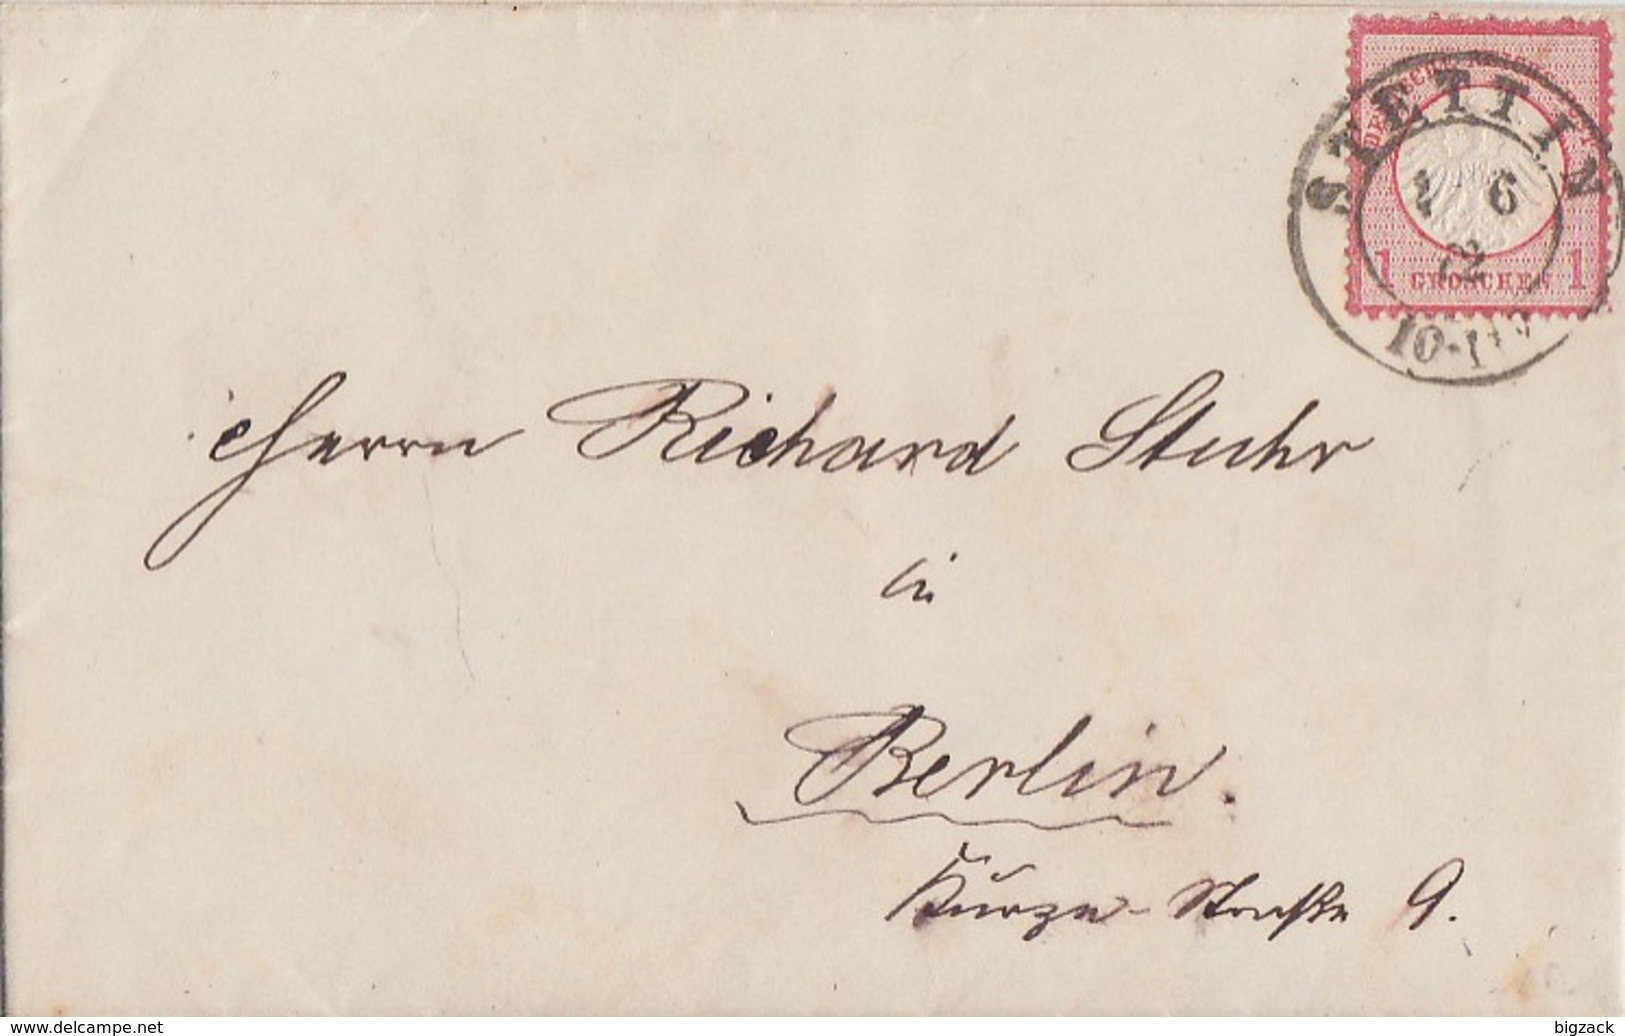 DEUTSCHE REICHS
1 GROSCHEN 1
STETTIN
6
72
Herrn Richard Stuhr
in
Berlin.
Kurze-Straße 9.
www.delcampe.net
bigzack